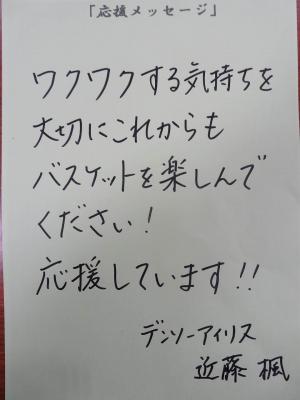 「応援メッセージ」
ワクワクする気持ちを
大切にこれからも
バスケットを楽しんで
ください!
応援しています!!
デンソーアイリス
近藤 楓